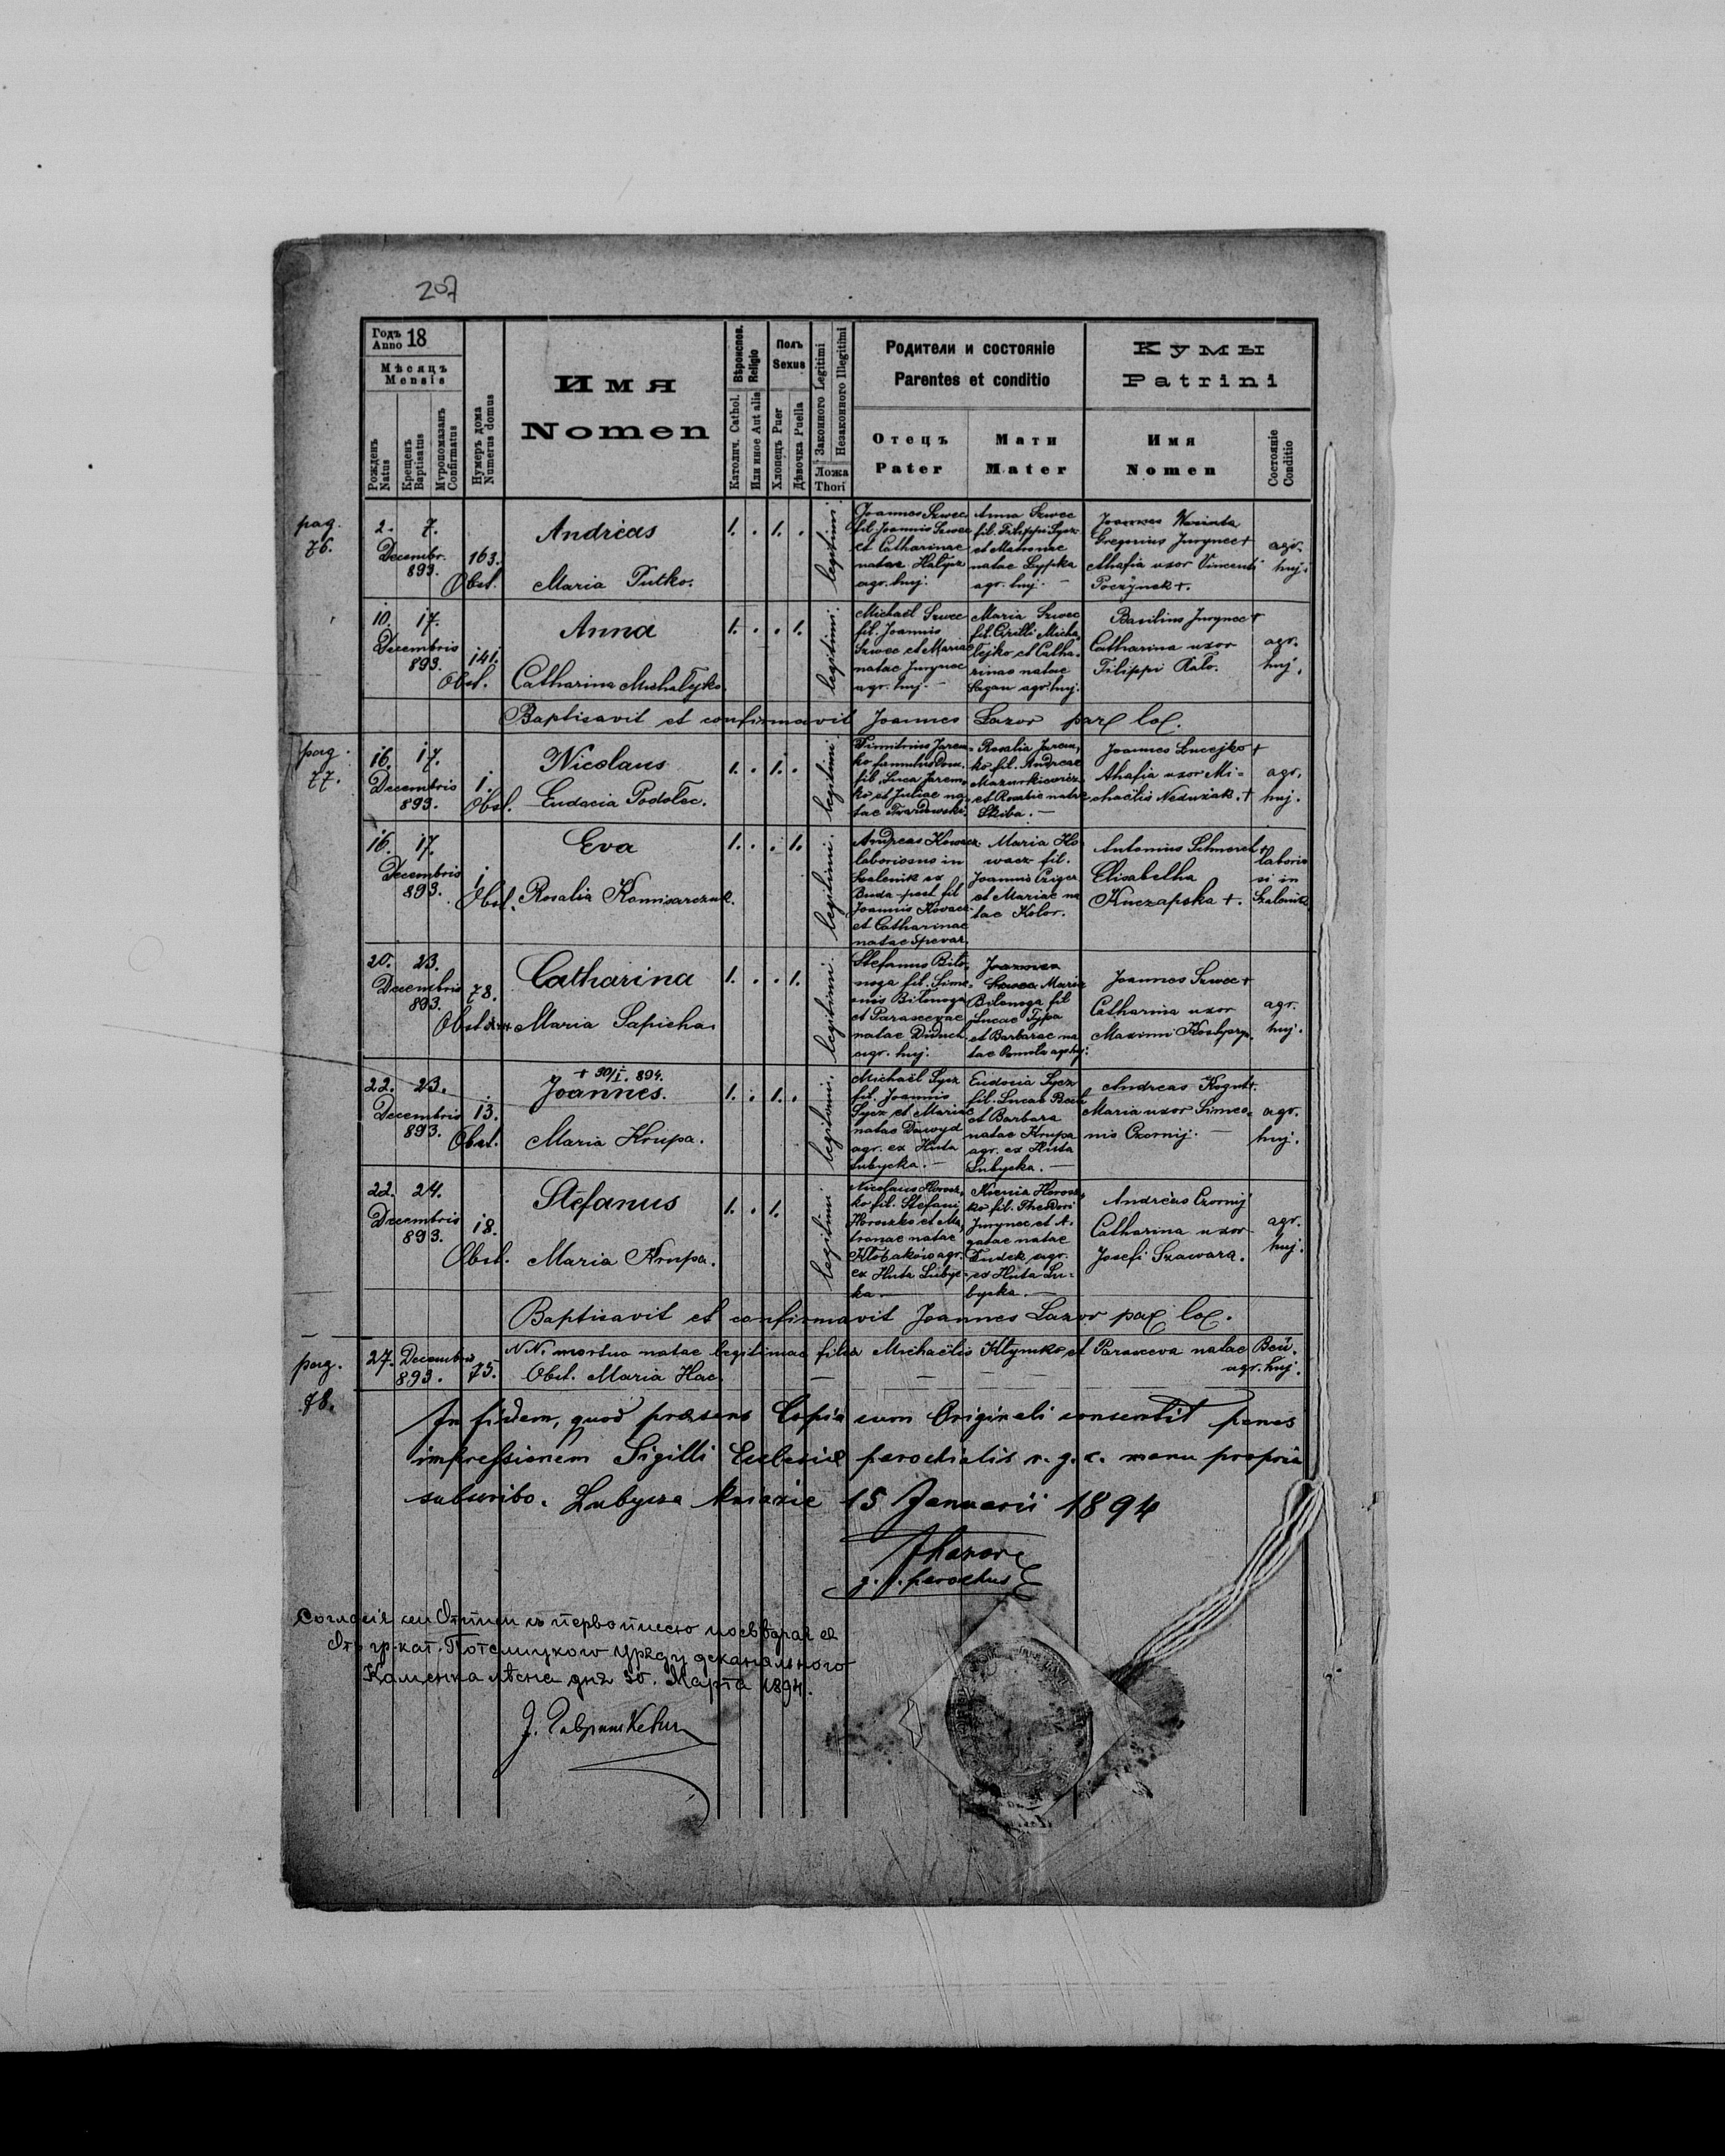 207
Годъ 18
Anno
Мѣсяцъ
Mensis
Рожденъ
Natus
Крещенъ
Baptisatus
Мѵропомазанъ
Confirmatus
Нумеръ дома
Numerus domus
Имя
Nomen
Вѣроиспов.
Religio
Католич. Cathol.
Или иное Aut alia
Полъ
Sexus
Хлопецъ Puer
Дѣвочка Puella
Законного Legitimi
Незаконного Illegitimi
Ложа
Thori
Родители и состоянie
Parentes et conditio
Отецъ
Pater
Мати
Mater
Кумы
Patrini
Имя
Nomen
Состоянie
Conditio
pag. 76.
2. 7. Decembr. 893.
163.
Andreas
Obst. Maria Putko.
1. . 1. .
legitimi
Joannes Szwec
fil. Joannis Szwec
et Catharinae
natae Halycz
agr. huj.
Anna Szwec
fil. Filippi Sycz
et Matronae
natae Lypka
agr. huj. —
Joannes
Gregorius Jurynec +
Ahafia uxor Vincenti
Poczynek +.
agr.
huj.
10. 17. Decembris 893.
141.
Anna
Obst. Catharina Michalejko
1. . . 1.
legitimi
Michaël Szwec
fil. Joannis
Szwec et Mariae
natae Jurynec
agr. huj. —
Maria Szwec
fil. Cirilli Micha
lejko et Catha-
rinae natae
Sagan agr. huj.
Basilius Jurynec +
Catharina uxor
Filippi Kalo.
agr.
huj.
Baptisavit et confirmavit Joannes Lazor par. loc.
pag. 77.
16. 17. Decembris 893.
1.
Nicolaus
Obst. Eudocia Podolec.
1. . 1. .
legitimi
Dimitrius Jarem-
ko famulus Dom.
fil. Luca Jarem
ko et Juliae na-
tae Twardowski
Rosalia Jarem,
ko fil. Andreae
Mazurkiewicz
et Rosalie natae
Skiba. —
Joannes Lucejko +
Ahafia uxor Mi-
chaëlis Neduzak. +
agr.
huj.
16. 17. Decembris 893.
1.
Eva
Obst. Rosalia Komisarczuk.
1. . . 1.
legitimi
Andreas Kowacz
laboriosus in
Szalenik ex
Buda-pest fil
Joannis Kovacz
et Catharinae
natae Spevar.
Maria Ko
wacz fil.
Joannis Cziger
et Mariae na
tae Kolor.
Antonius Schmorch +
Elisabetha
Kuczapska +.
laborio
si in
20. 23. Decembris 893.
78.
Catharina
Obst. Maria Sapieha.
1. . . 1.
legitimi
Stefanus Bilo-
noga fil. Sime-
onis Bilonoga
et Parascevae
natae Diduch
agr. huj.
Joannes
Szwec Maria
Bilonoga fil
Lucae Typa
et Barbarae na
tae agr. huj.
Joannes Szwec +
Catharina uxor
Maximi
agr.
huj.
22. 23. Decembris 893.
13.
+ 30/I. 894.
Joannes.
Obst. Maria Krupa.
1. . 1. .
legitimi
Michaël Sycz
fil. Joannis
Sycz et Mariae
natae Dawyd
agr. ex Huta
Lubycka. —
Eudocia Sycz
fil. Lucae
et Barbara
natae Krupa
agr. ex Huta
Lubycka. —
Andreas Kogut +.
Maria uxor Simeo-
nis Czornij. —
agr.
huj.
22. 24. Decembris 893.
18.
Stefanus
Obst. Maria Krupa.
1. . 1.
legitimi
Nicolaus Horosz,
ko fil. Stefani
Horoszko et Ma,
tronae natae
Klobaków agr.
ex Huta Lubyc-
ka —
Xenia Horosz,
ko fil. Theodori
Jurynec et A-
gatae natae
Dudek agr.
ex Huta Lu-
bycka. —
Andreas Czornij
Catharina uxor
Josefi Szawara.
agr.
huj.
Baptisavit et confirmavit Joannes Lazor par. loc.
pag. 78.
27. Decembris 893. 75. N.N. mortua natae legitimae filia Michaëlis Klymko et Parasceva natae Beu.
Obst. Maria Hac. — — — — agr. huj.
In fidem, quod praesens Copia cum Originali consentit penes
impressionem Sigilli Ecclesiae parochialis r. g. c. manu propria
subscribo. Lubycza kniazie 15 Januarii 1894
JLazor
g. r. parochus
Отъ гр. кат. Потелицкого уряду деканального
Каменка лѣсна дня 30. Марта 1894.